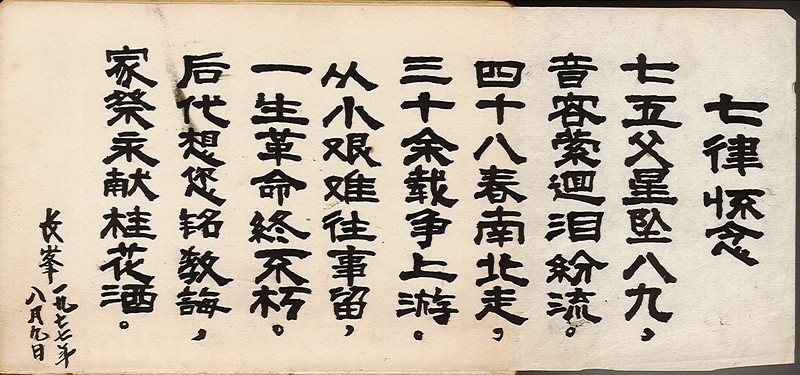 七律怀念
七五父星坠八九，
音容萦迴泪紛流。
四十八春南北走，
三十余载争上游。
从小艰难往事留，
一生革命終不朽。
后代想您铭教誨，
家祭永献桂花酒。
长峯 一九七七年
八月九日